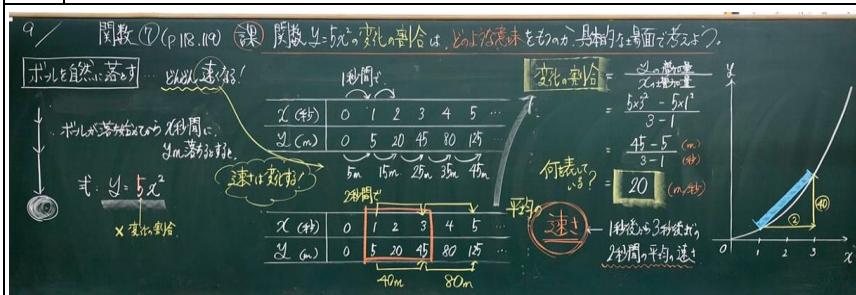 9/
関数⑦(P118.119) 課 関数y=5x²の変化の割合は、どのような意味をもつのか、具体的な場面で考えよう。
ボールを自然に落とす … どんどん速くなる!
ボールが落ち始めてから x秒間に、
ym落ちるとすると、
式: y=5x²
× 変化の割合
速さは変化する!
1秒間で
x(秒) 0 1 2 3 4 5 …
y(m) 0 5 20 45 80 125 …
5m 15m 25m 35m 45m
2秒間で
x(秒) 0 1 2 3 4 5 …
y(m) 0 5 20 45 80 125 …
40m 80m
変化の割合 = yの増加量/xの増加量
= 5×3² - 5×1² / 3-1
= 45-5 (m) / 3-1 (秒)
= 20 (m/秒)
何を表して
いる?
平均の
速さ
← 1秒後から3秒後までの
2秒間の平均の速さ
y
40
②
0 1 2 3 x